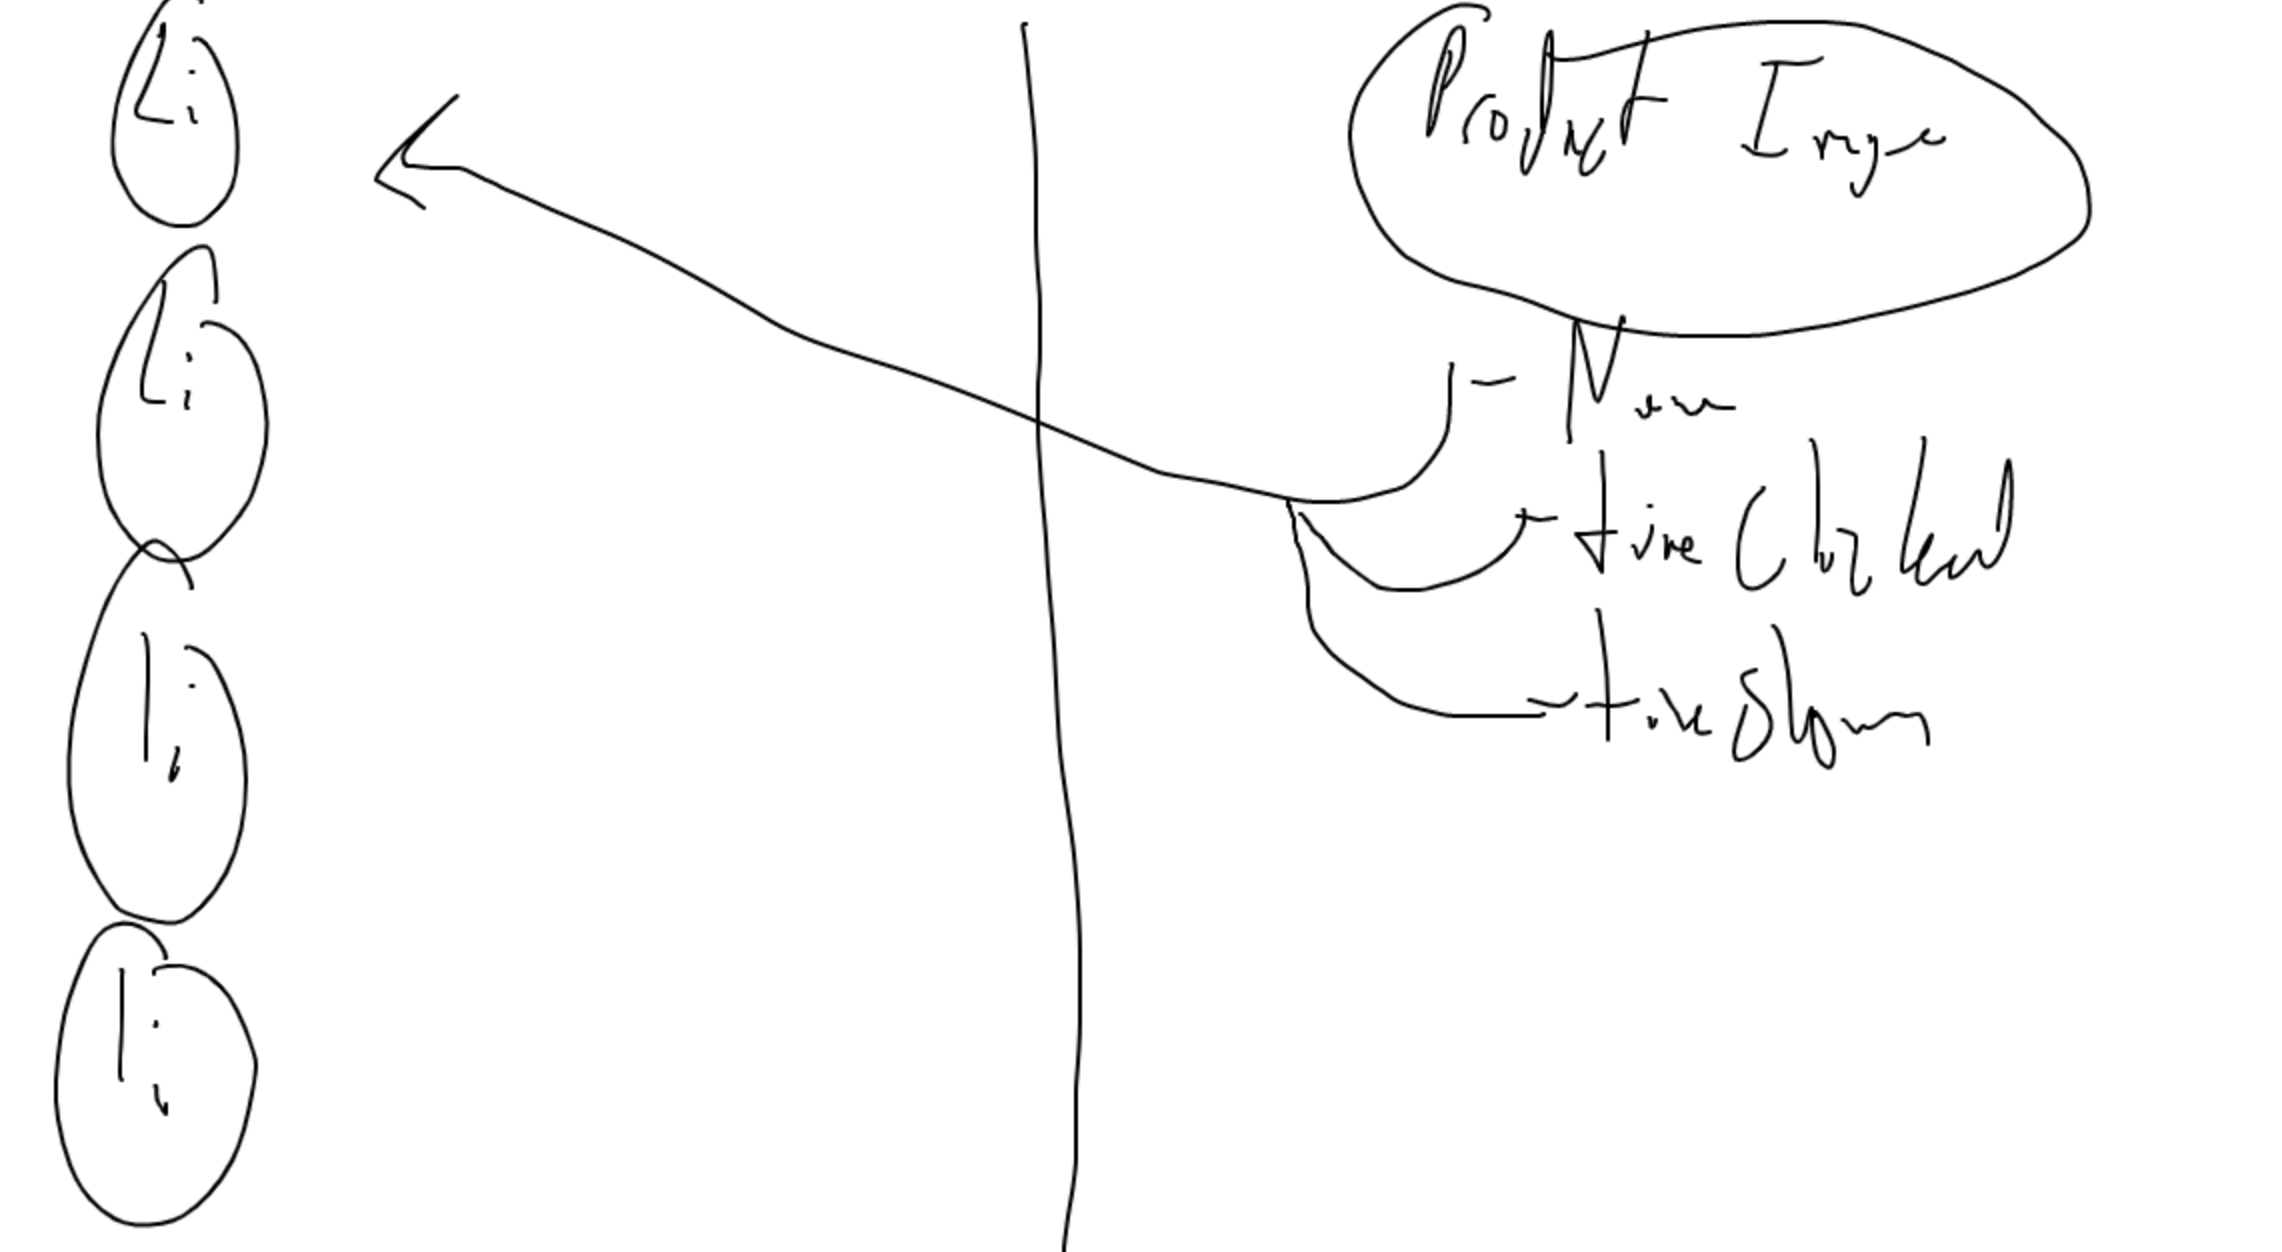 Li
Li
li
li
Product Image
- Name
- time Clicked
- time Shown